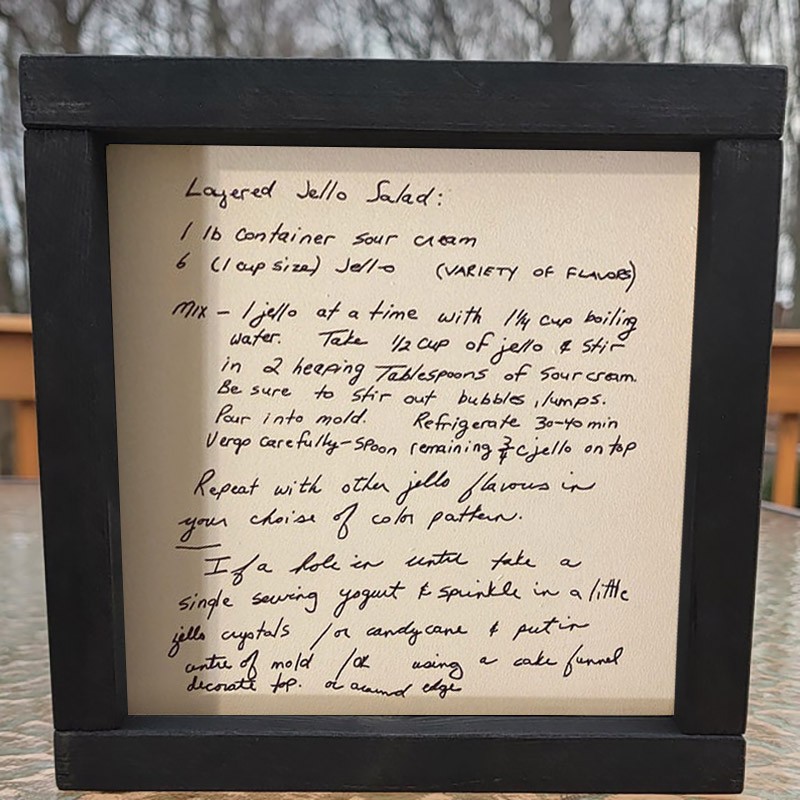 Layered Jello Salad:
1 lb container sour cream
6 (1 cup size) Jello (VARIETY OF FLAVORS)
Mix - 1 jello at a time with 1 1/4 cup boiling
water. Take 1/2 cup of jello & stir
in 2 heaping Tablespoons of sour cream.
Be sure to stir out bubbles, lumps.
Pour into mold. Refrigerate 30-40 min
Very carefully - spoon remaining 3/4 c jello on top
Repeat with other jello flavours in
your choise of color pattern.
If a hole in take a
single serving yogurt & sprinkle in a little
jello crystals /or candy cane & put in
centre of mold /OR using a cake funnel
decorate top. or around edge